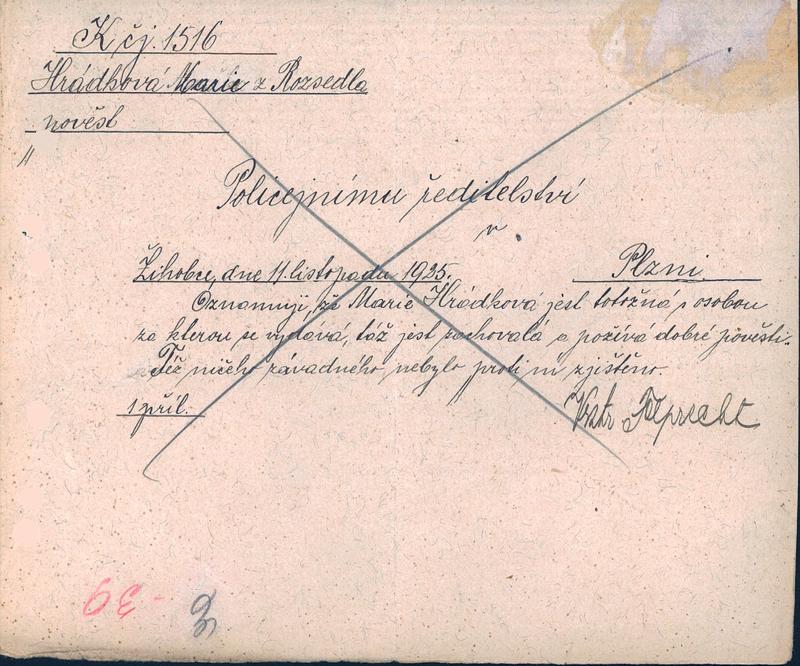 K čj. 1516
Hrádková Marie z Rozsedla
pověst
Policejnímu ředitelství
v
Plzni.
Žihobce, dne 11. listopadu 1925.
Oznamuji, že Marie Hrádková jest totožná s osobou
za kterou se vydává, táž jest zachovalá a požívá dobré pověsti.
Též ničeho závadného nebylo proti ní zjištěno.
1 příl.
Vstr